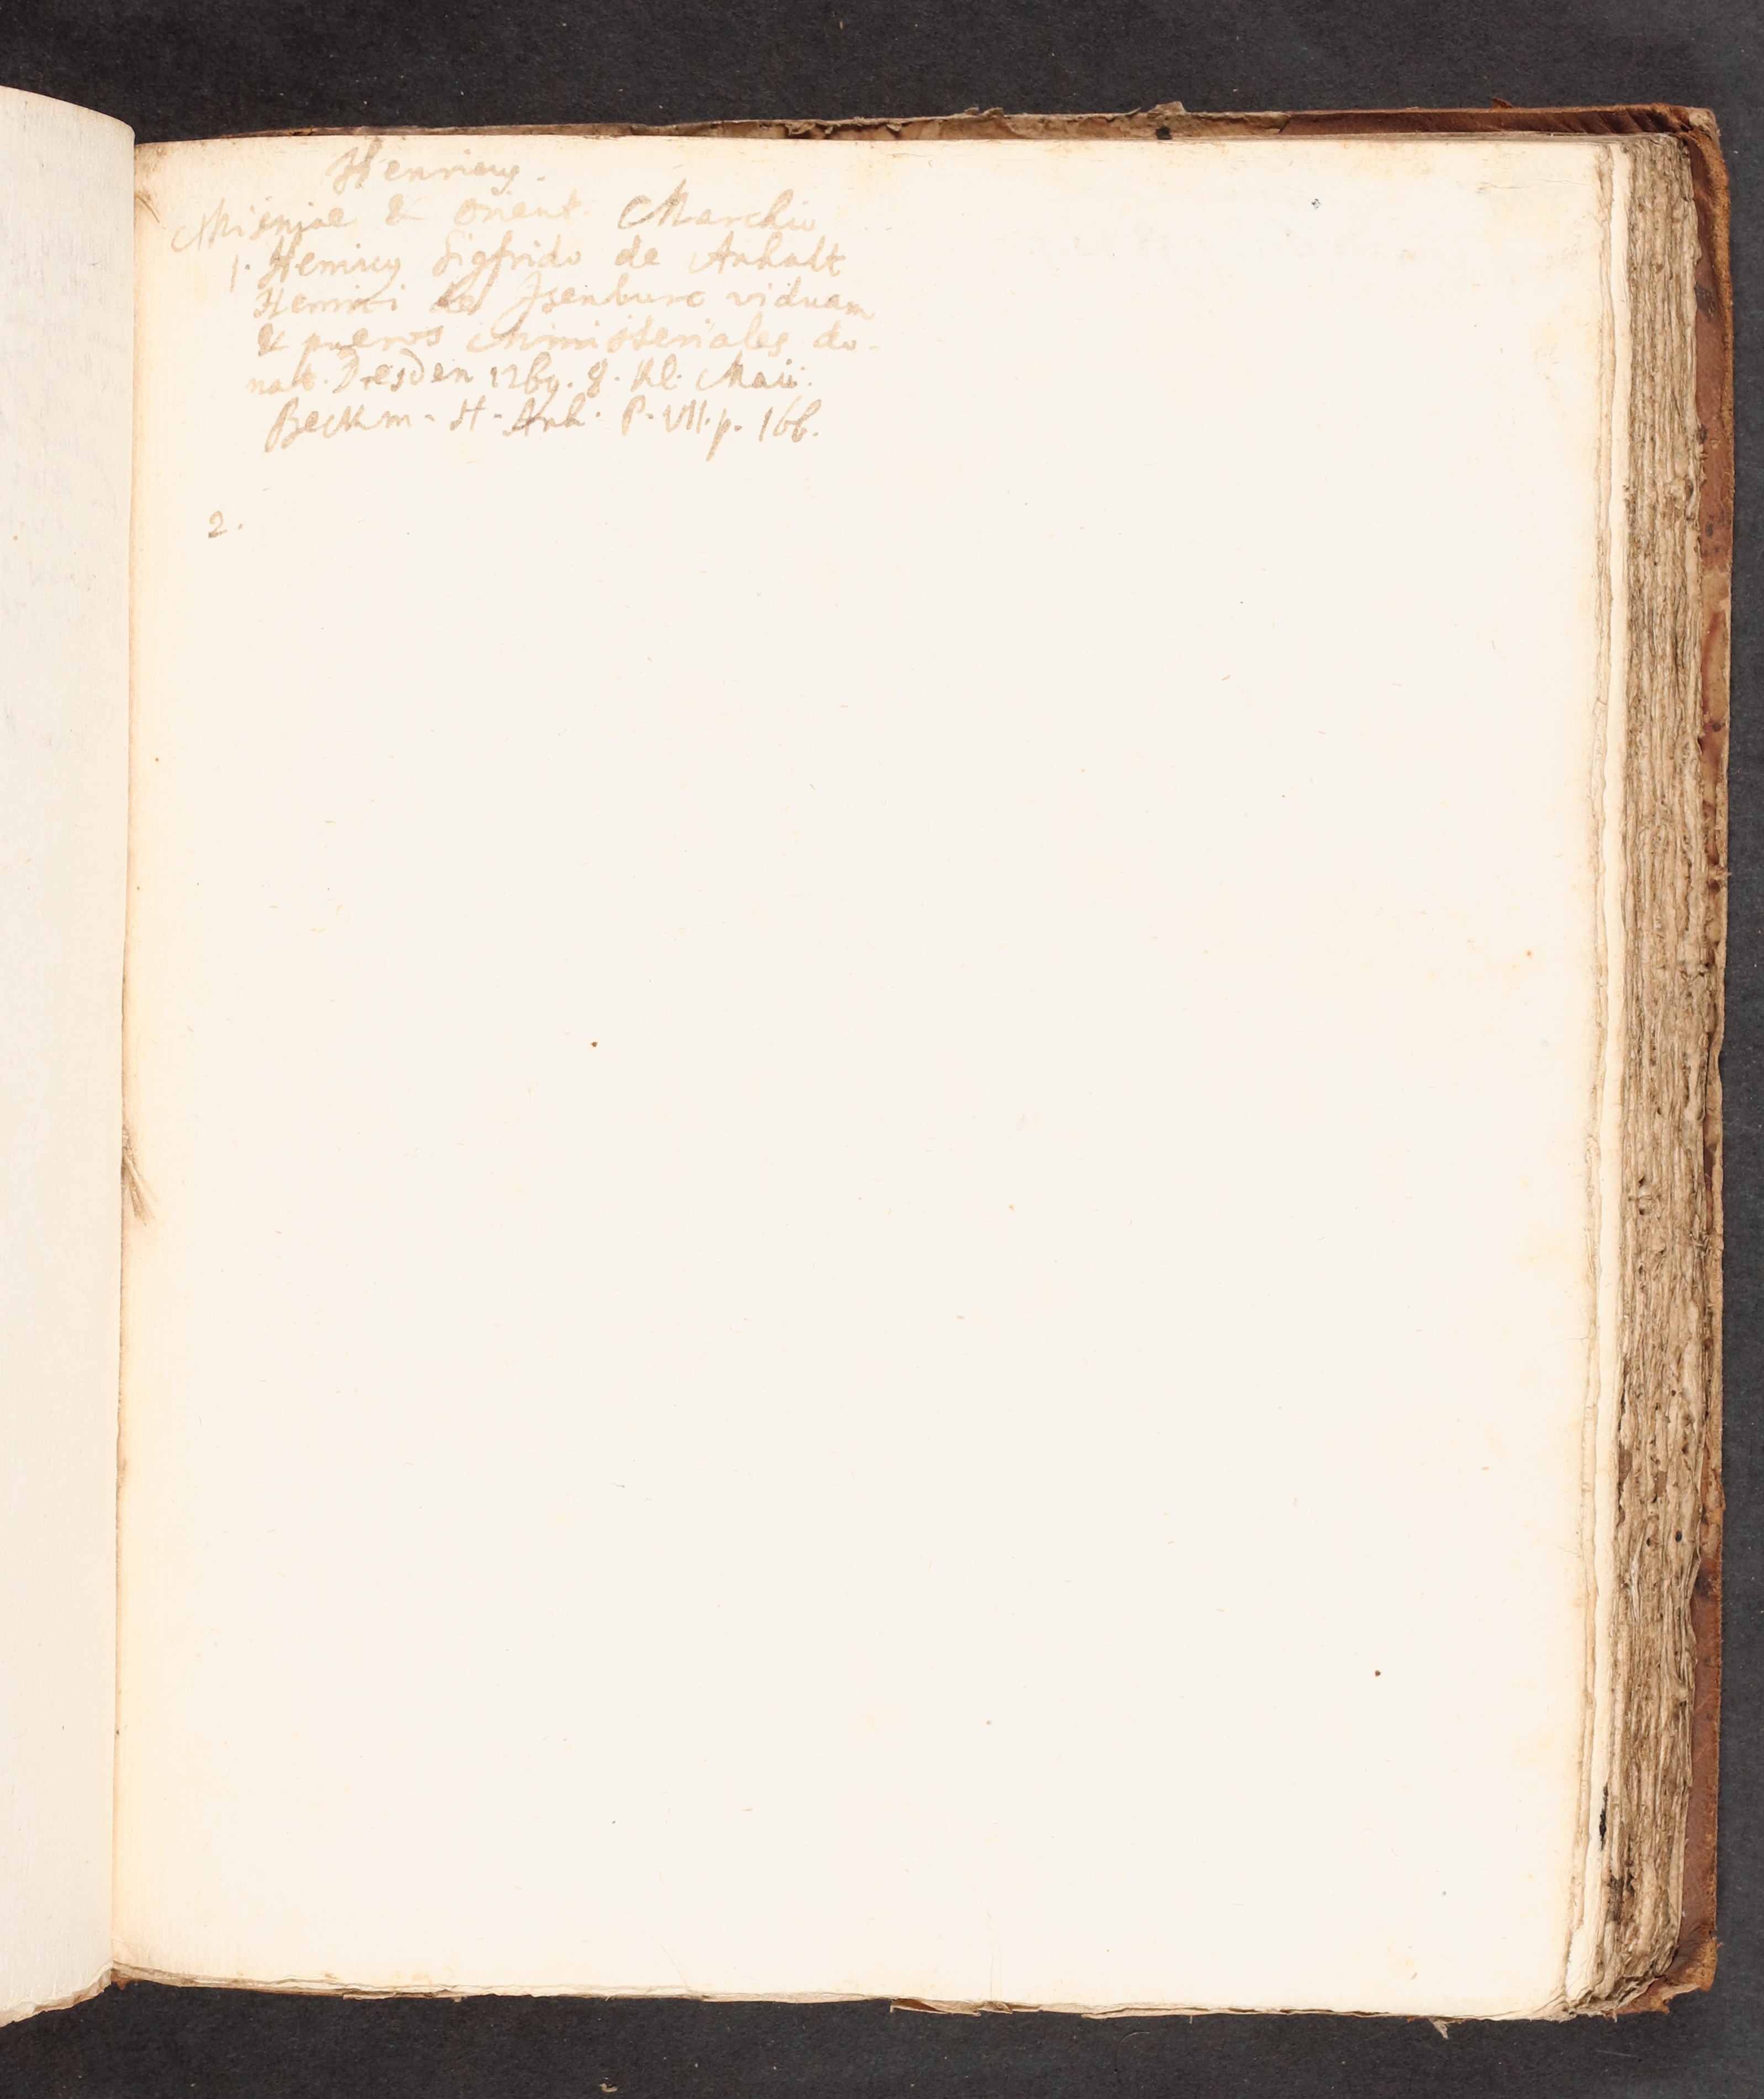 Henricus.
Misniae & Orient. Marchio
1. Henricus Sigfrido de Anhalt
Henrici de Isenburc viduam
& pueros Ministeriales do-
nat. Dresden 1269. 8. Kl. Maii.
Beckm. H. Anh. P. VII. p. 166.
2.